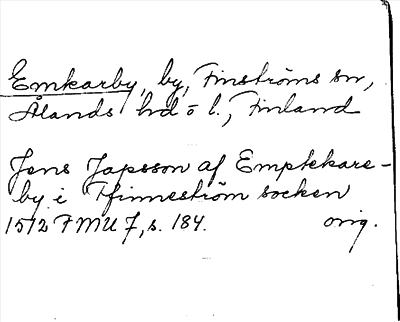 Emkarby, by, Finströms sn,
Ålands hd o l., Finland
Jens Japsson af Empkkare-
by i Ffinneström socken
1512 FMU 7, s. 184. orig.